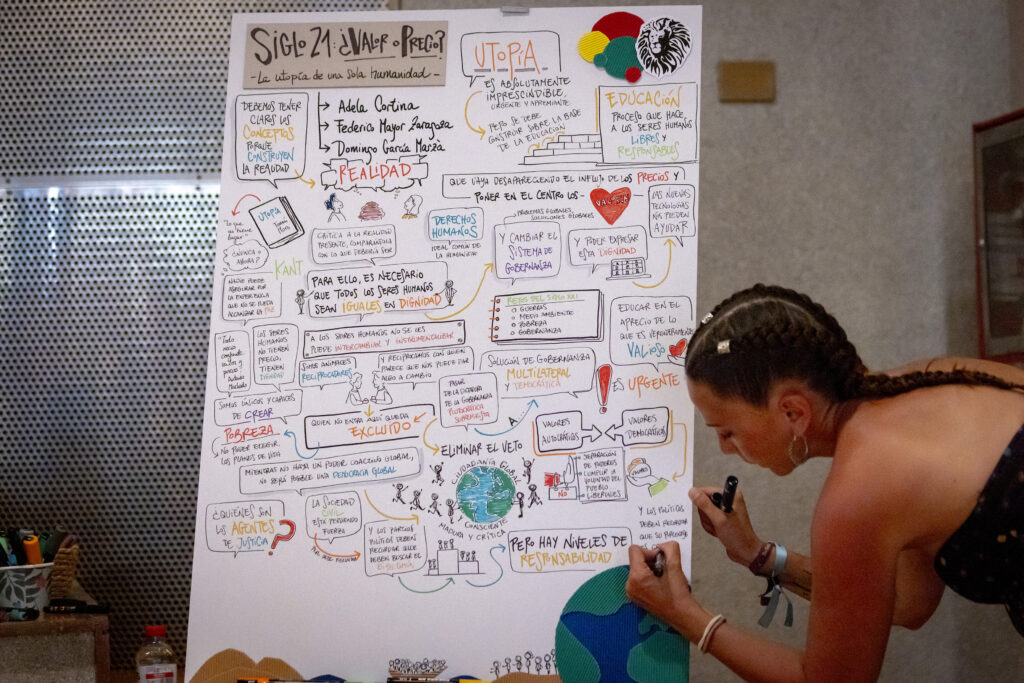 SIGLO 21: ¿VALOR o PRECIO?
- La utopía de una sola humanidad -
DEBEMOS TENER
CLAROS LOS
CONCEPTOS
PORQUE
CONSTRUYEN
LA REALIDAD
Adela Cortina
Federico Mayor Zaragoza
Domingo García Marzá
REALIDAD
UTOPÍA
ES ABSOLUTAMENTE
IMPRESCINDIBLE,
URGENTE y APREMIANTE
PERO SE DEBE
CONSTRUIR SOBRE LA BASE
DE LA EDUCACIÓN
EDUCACIÓN
PROCESO QUE HACE,
A LOS SERES HUMANOS
LIBRES y
RESPONSABLES
QUE VAYA DESAPARECIENDO EL INFLUJO DE LOS PRECIOS Y
PONER EN EL CENTRO LOS
VALORES
LAS NUEVAS
TECNOLOGÍAS
NOS PUEDEN
AYUDAR
UTOPÍA
¿NUNCA o
AHORA?
CRÍTICA A LA REALIDAD
PRESENTE, COMPARÁNDOLA
CON LO QUE DEBERÍA SER
DERECHOS
HUMANOS
IDEAL COMÚN DE
LA HUMANIDAD
PROBLEMAS GLOBALES,
SOLUCIONES GLOBALES
Y CAMBIAR EL
SISTEMA DE
GOBERNANZA
Y PODER EXPRESAR
ESTA DIGNIDAD
KANT
NADIE PUEDE
ASEGURAR POR
LA EXPERIENCIA
QUE NO SE PUEDA
ALCANZAR LA PAZ
PARA ELLO, ES NECESARIO
QUE TODOS LOS SERES HUMANOS
SEAN IGUALES EN DIGNIDAD
RETOS DEL SIGLO XXI
GUERRAS
MEDIO AMBIENTE
POBREZA
GOBERNANZA
EDUCAR EN EL
APRECIO DE LO
QUE ES VERDADERAMENTE
VALIOSO
"Todo
necio
confunde
valor y
precio"
Antonio
Machado
LOS SERES
HUMANOS
NO TIENEN
PRECIO,
TIENEN
DIGNIDAD
A LOS SERES HUMANOS NO SE LES
PUEDE INTERCAMBIAR E INSTRUMENTALIZAR
SOMOS ANIMALES
RECIPROCADORES
Y RECIPROCAMOS CON QUIEN
PARECE QUE NOS PUEDE DAR
ALGO A CAMBIO
SOLUCIÓN DE GOBERNANZA
MULTILATERAL
Y DEMOCRÁTICA
ES URGENTE
PASAR
DE LA DICTADURA
DE LA GOBERNANZA
PLUTOCRÁTICA
SUPREMACISTA
A
SOMOS ÚNICOS y CAPACES
DE CREAR
POBREZA
NO PODER ELEGIR
LOS PLANES DE VIDA
QUIEN NO ENTRA AQUÍ QUEDA
EXCLUIDO
ELIMINAR EL VETO
VALORES
AUTOCRÁTICOS
VALORES
DEMOCRÁTICOS
SEPARACIÓN DE
PODERES
CUMPLIR LA
VOLUNTAD DEL
PUEBLO
LIBERALES
NO
MIENTRAS NO HAYA UN PODER COACTIVO GLOBAL,
NO SERÁ POSIBLE UNA DEMOCRACIA GLOBAL
CIUDADANÍA GLOBAL
CONSCIENTE
MADURA Y CRÍTICA
¿QUIÉNES SON
LOS AGENTES
DE JUSTICIA?
LA SOCIEDAD
CIVIL
ESTÁ PERDIENDO
FUERZA
Y LOS PARTIDOS
POLÍTICOS DEBEN
RECORDAR QUE
DEBEN BUSCAR EL
PERO HAY NIVELES DE
RESPONSABILIDAD
Y LOS POLÍTICOS
DEBEN RECORDAR